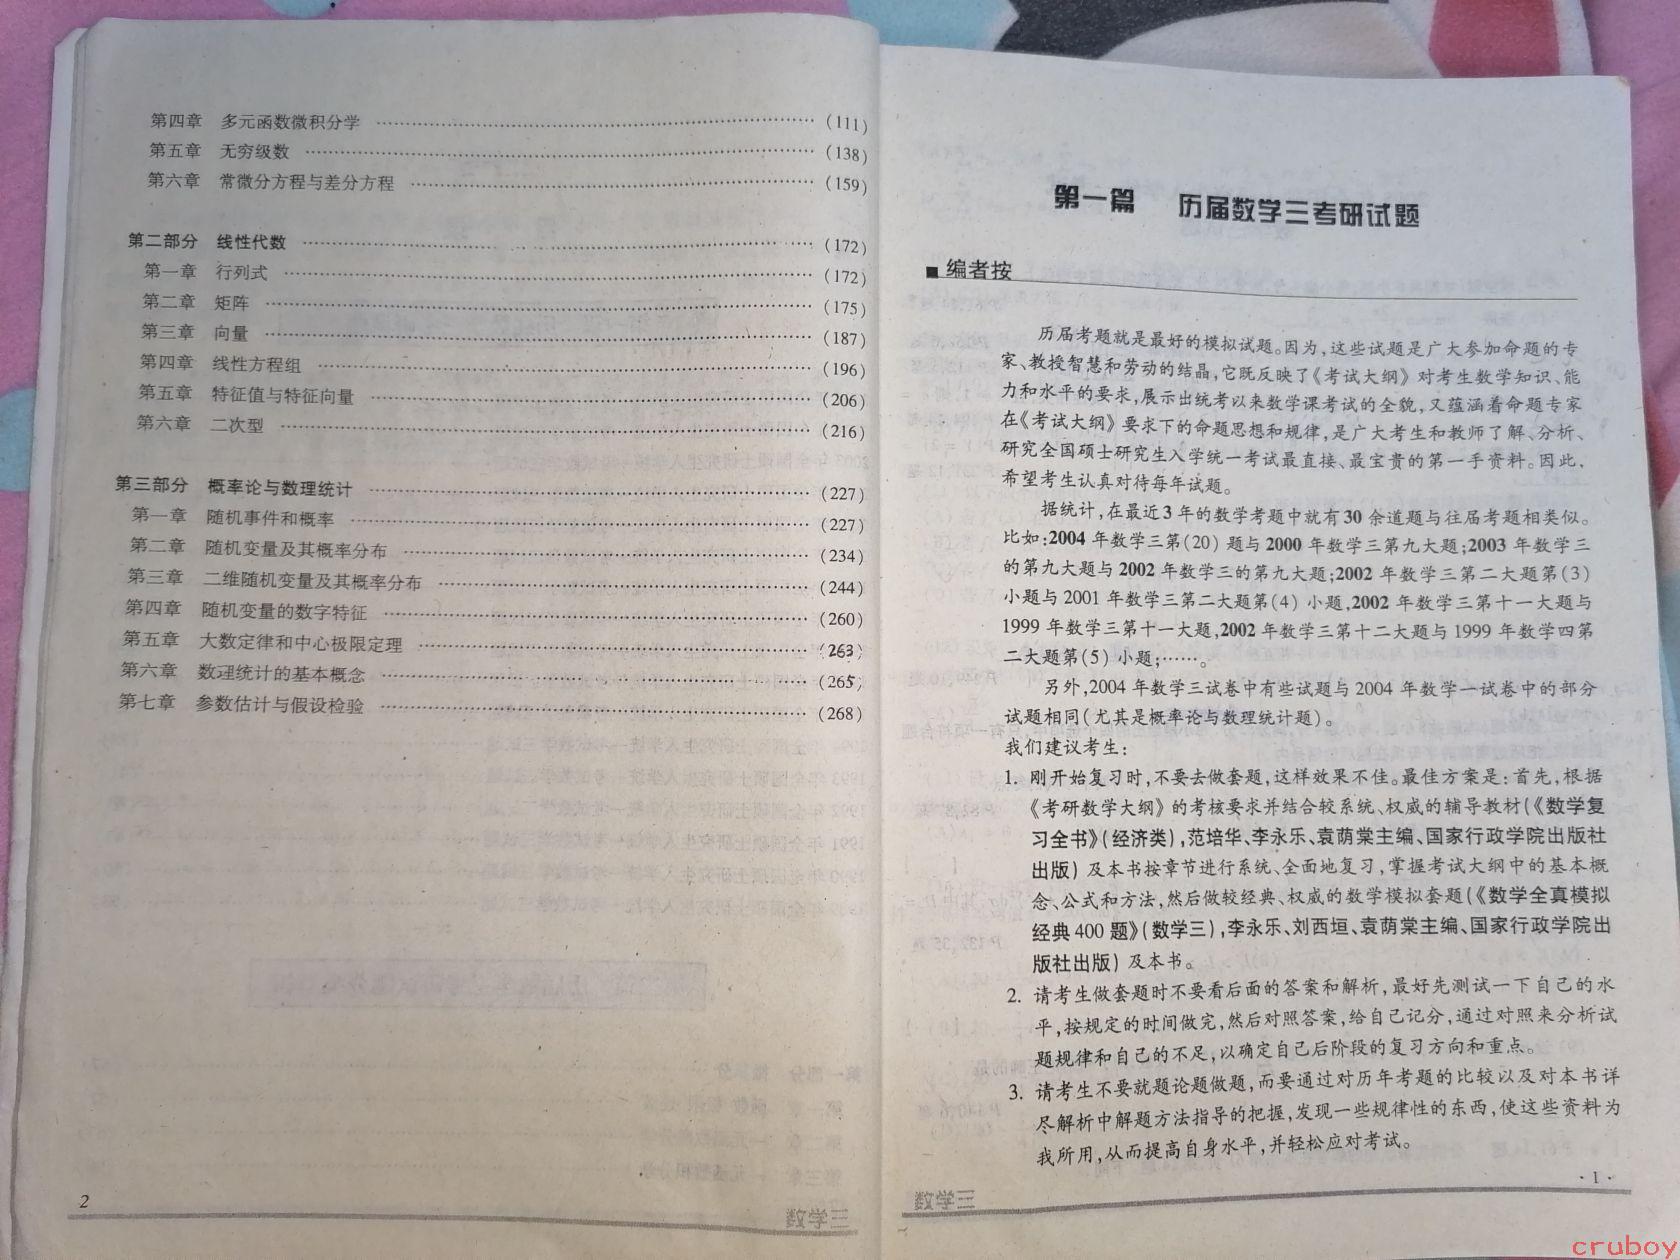 第四章 多元函数微积分学 ……………………………… (111)
第五章 无穷级数 ……………………………… (138)
第六章 常微分方程与差分方程 ……………………………… (159)
第二部分 线性代数 ……………………………… (172)
第一章 行列式 ……………………………… (172)
第二章 矩阵 ……………………………… (175)
第三章 向量 ……………………………… (187)
第四章 线性方程组 ……………………………… (196)
第五章 特征值与特征向量 ……………………………… (206)
第六章 二次型 ……………………………… (216)
第三部分 概率论与数理统计 ……………………………… (227)
第一章 随机事件和概率 ……………………………… (227)
第二章 随机变量及其概率分布 ……………………………… (234)
第三章 二维随机变量及其概率分布 ……………………………… (244)
第四章 随机变量的数字特征 ……………………………… (260)
第五章 大数定律和中心极限定理 ……………………………… (263)
第六章 数理统计的基本概念 ……………………………… (265)
第七章 参数估计与假设检验 ……………………………… (268)
2
数学三
第一篇 历届数学三考研试题
■ 编者按
历届考题就是最好的模拟试题。因为,这些试题是广大参加命题的专
家、教授智慧和劳动的结晶,它既反映了《考试大纲》对考生数学知识、能
力和水平的要求,展示出统考以来数学课考试的全貌,又蕴涵着命题专家
在《考试大纲》要求下的命题思想和规律,是广大考生和教师了解、分析、
研究全国硕士研究生入学统一考试最直接、最宝贵的第一手资料。因此,
希望考生认真对待每年试题。
据统计,在最近3年的数学考题中就有30余道题与往届考题相类似。
比如:2004年数学三第(20)题与2000年数学三第九大题;2003年数学三
的第九大题与2002年数学三的第九大题;2002年数学三第二大题第(3)
小题与2001年数学三第二大题第(4)小题,2002年数学三第十一大题与
1999年数学三第十一大题,2002年数学三第十二大题与1999年数学四第
二大题第(5)小题;……。
另外,2004年数学三试卷中有些试题与2004年数学一试卷中的部分
试题相同(尤其是概率论与数理统计题)。
我们建议考生:
1. 刚开始复习时,不要去做套题,这样效果不佳。最佳方案是:首先,根据
《考研数学大纲》的考核要求并结合较系统、权威的辅导教材(《数学复
习全书》(经济类),范培华、李永乐、袁荫棠主编、国家行政学院出版社
出版)及本书按章节进行系统、全面地复习,掌握考试大纲中的基本概
念、公式和方法,然后做较经典、权威的数学模拟套题(《数学全真模拟
经典400题》(数学三),李永乐、刘西垣、袁荫棠主编、国家行政学院出
版社出版)及本书。
2. 请考生做套题时不要看后面的答案和解析,最好先测试一下自己的水
平,按规定的时间做完,然后对照答案,给自己记分,通过对照来分析试
题规律和自己的不足,以确定自己后阶段的复习方向和重点。
3. 请考生不要就题论题做题,而要通过对历年考题的比较以及对本书详
尽解析中解题方法指导的把握,发现一些规律性的东西,使这些资料为
我所用,从而提高自身水平,并轻松应对考试。
·1·
数学三
cruboy